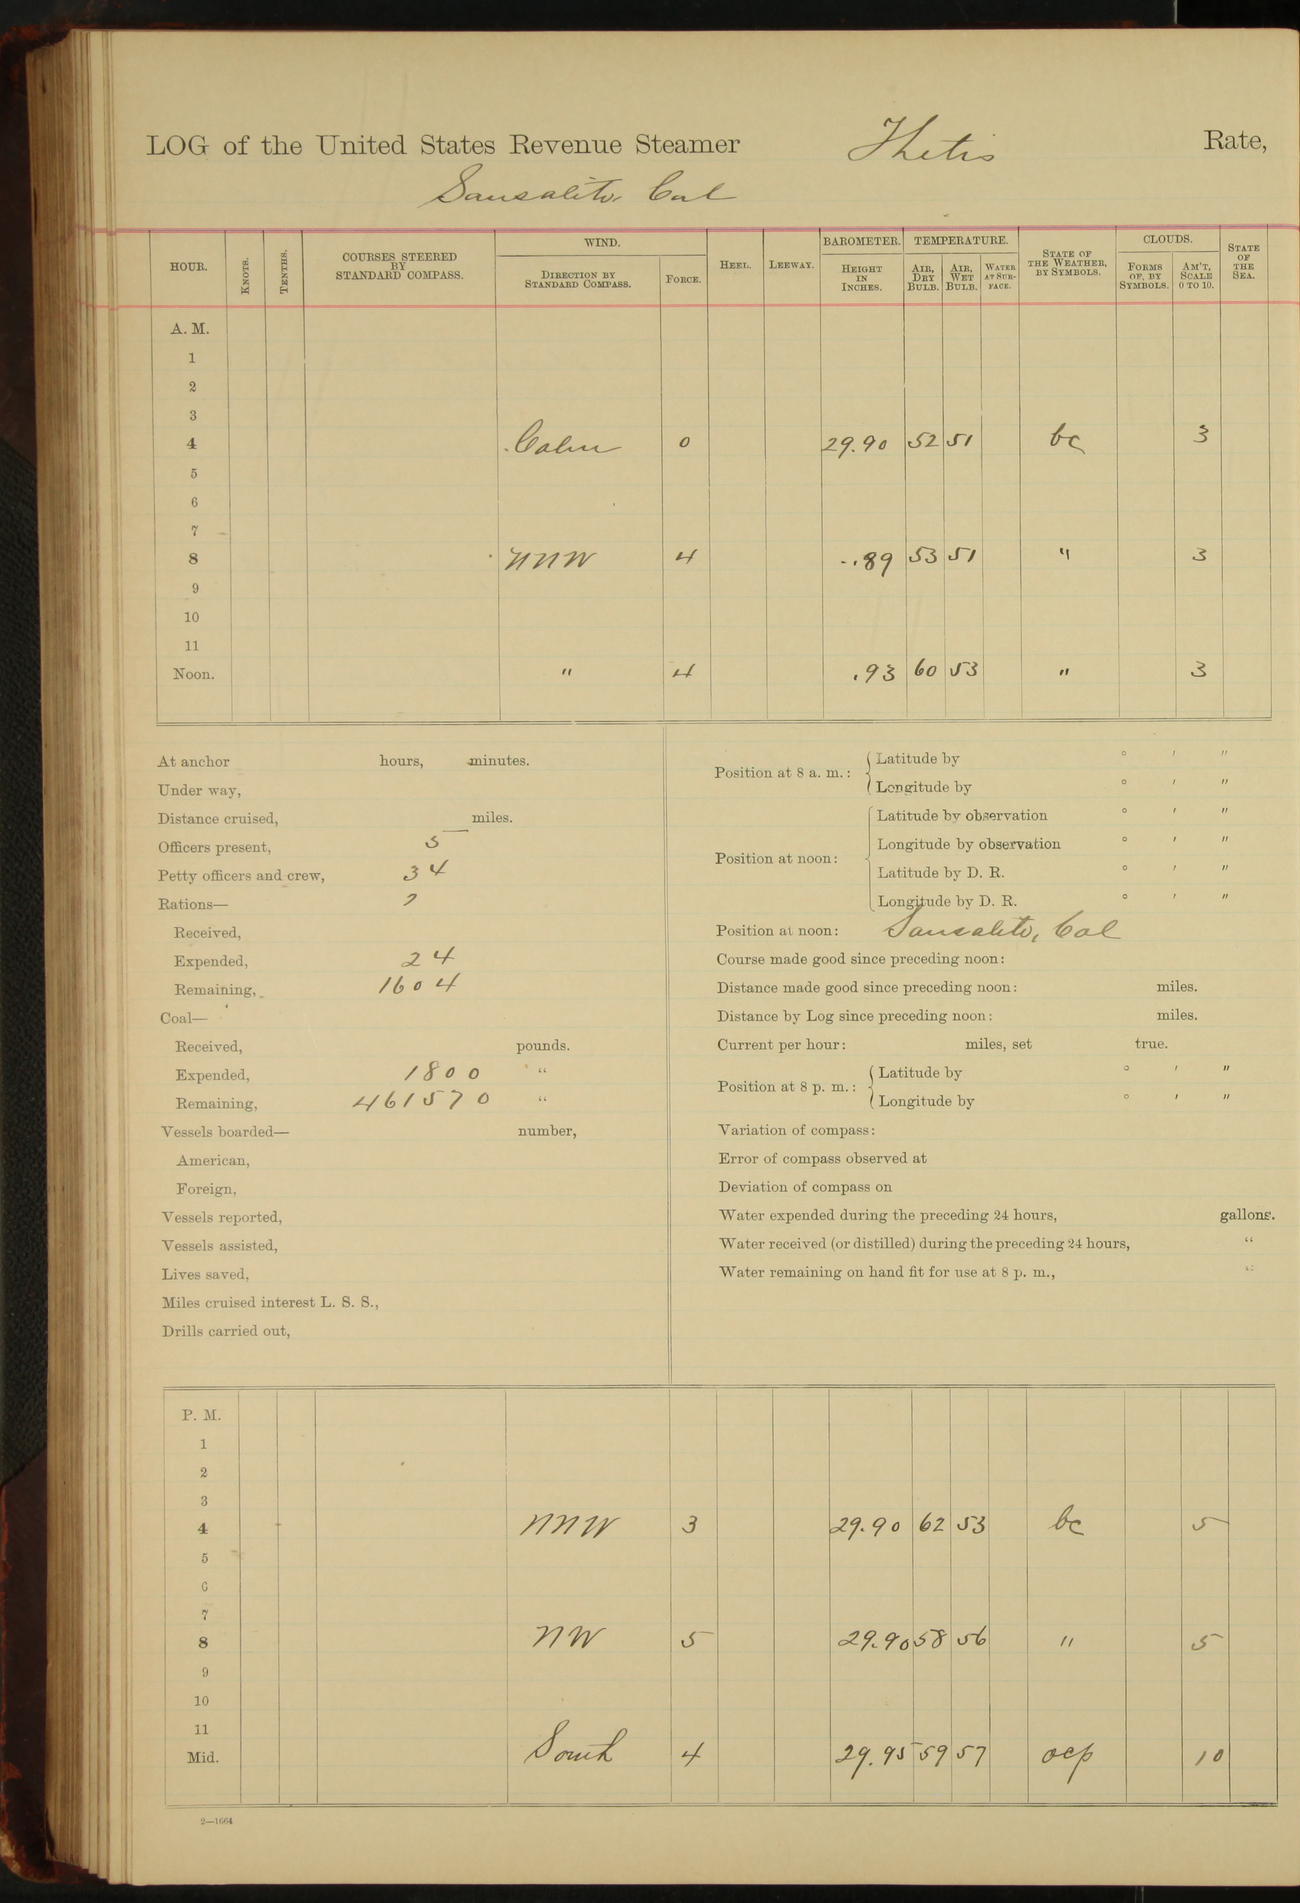 LOG of the United States Revenue Steamer Thetis Rate,
Sausalito, Cal
HOUR. KNOTS. TENTHS. COURSES STEERED BY STANDARD COMPASS. WIND. DIRECTION BY STANDARD COMPASS. FORCE. HEEL. LEEWAY. BAROMETER. HEIGHT IN INCHES. TEMPERATURE. AIR, DRY BULB. AIR, WET BULB. WATER AT SURFACE. STATE OF THE WEATHER, BY SYMBOLS. CLOUDS. FORMS OF, BY SYMBOLS. AM'T, SCALE 0 TO 10. STATE OF THE SEA.
A. M.
1
2
3
4 Calm 0 29.90 52 51 bc 3
5
6
7
8 NNW 4 -.89 53 51 " 3
9
10
11
Noon. " 4 .93 60 53 " 3
At anchor hours, minutes.
Under way,
Distance cruised, miles.
Officers present, 5
Petty officers and crew, 34
Rations—
Received,
Expended, 24
Remaining, 1604
Coal—
Received, pounds.
Expended, 1800 "
Remaining, 461570 "
Vessels boarded— number,
American,
Foreign,
Vessels reported,
Vessels assisted,
Lives saved,
Miles cruised interest L. S. S.,
Drills carried out,
Position at 8 a. m.: Latitude by ° ′ ″
Longitude by ° ′ ″
Position at noon: Latitude by observation ° ′ ″
Longitude by observation ° ′ ″
Latitude by D. R. ° ′ ″
Longitude by D. R. ° ′ ″
Position at noon: Sausalito, Cal
Course made good since preceding noon:
Distance made good since preceding noon: miles.
Distance by Log since preceding noon: miles.
Current per hour: miles, set true.
Position at 8 p. m.: Latitude by ° ′ ″
Longitude by ° ′ ″
Variation of compass:
Error of compass observed at
Deviation of compass on
Water expended during the preceding 24 hours, gallons.
Water received (or distilled) during the preceding 24 hours, "
Water remaining on hand fit for use at 8 p. m., "
P. M.
1
2
3
4 NNW 3 29.90 62 53 bc 5
5
6
7
8 NW 5 29.90 58 56 " 5
9
10
11
Mid. South 4 29.95 59 57 ocp 10
2—1664